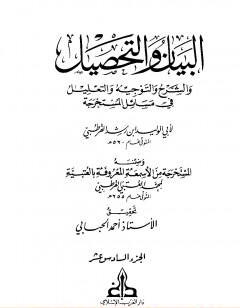 البيان والتحصيل
والشرح والتوجيه والتعليل
في مسائل المستخرجة
لأبي الوليد ابن رشد القرطبي
المتوفى عام ٥٢٠ هـ
وضمنه
المستخرجة من الأسمعة المعروفة بالعتبية
لمحمد العتبي القرطبي
المتوفى عام ٢٥٥ هـ
تحقيق
الأستاذ أحمد الحبابي
الجزء السادس عشر
دار الغرب الإسلامي